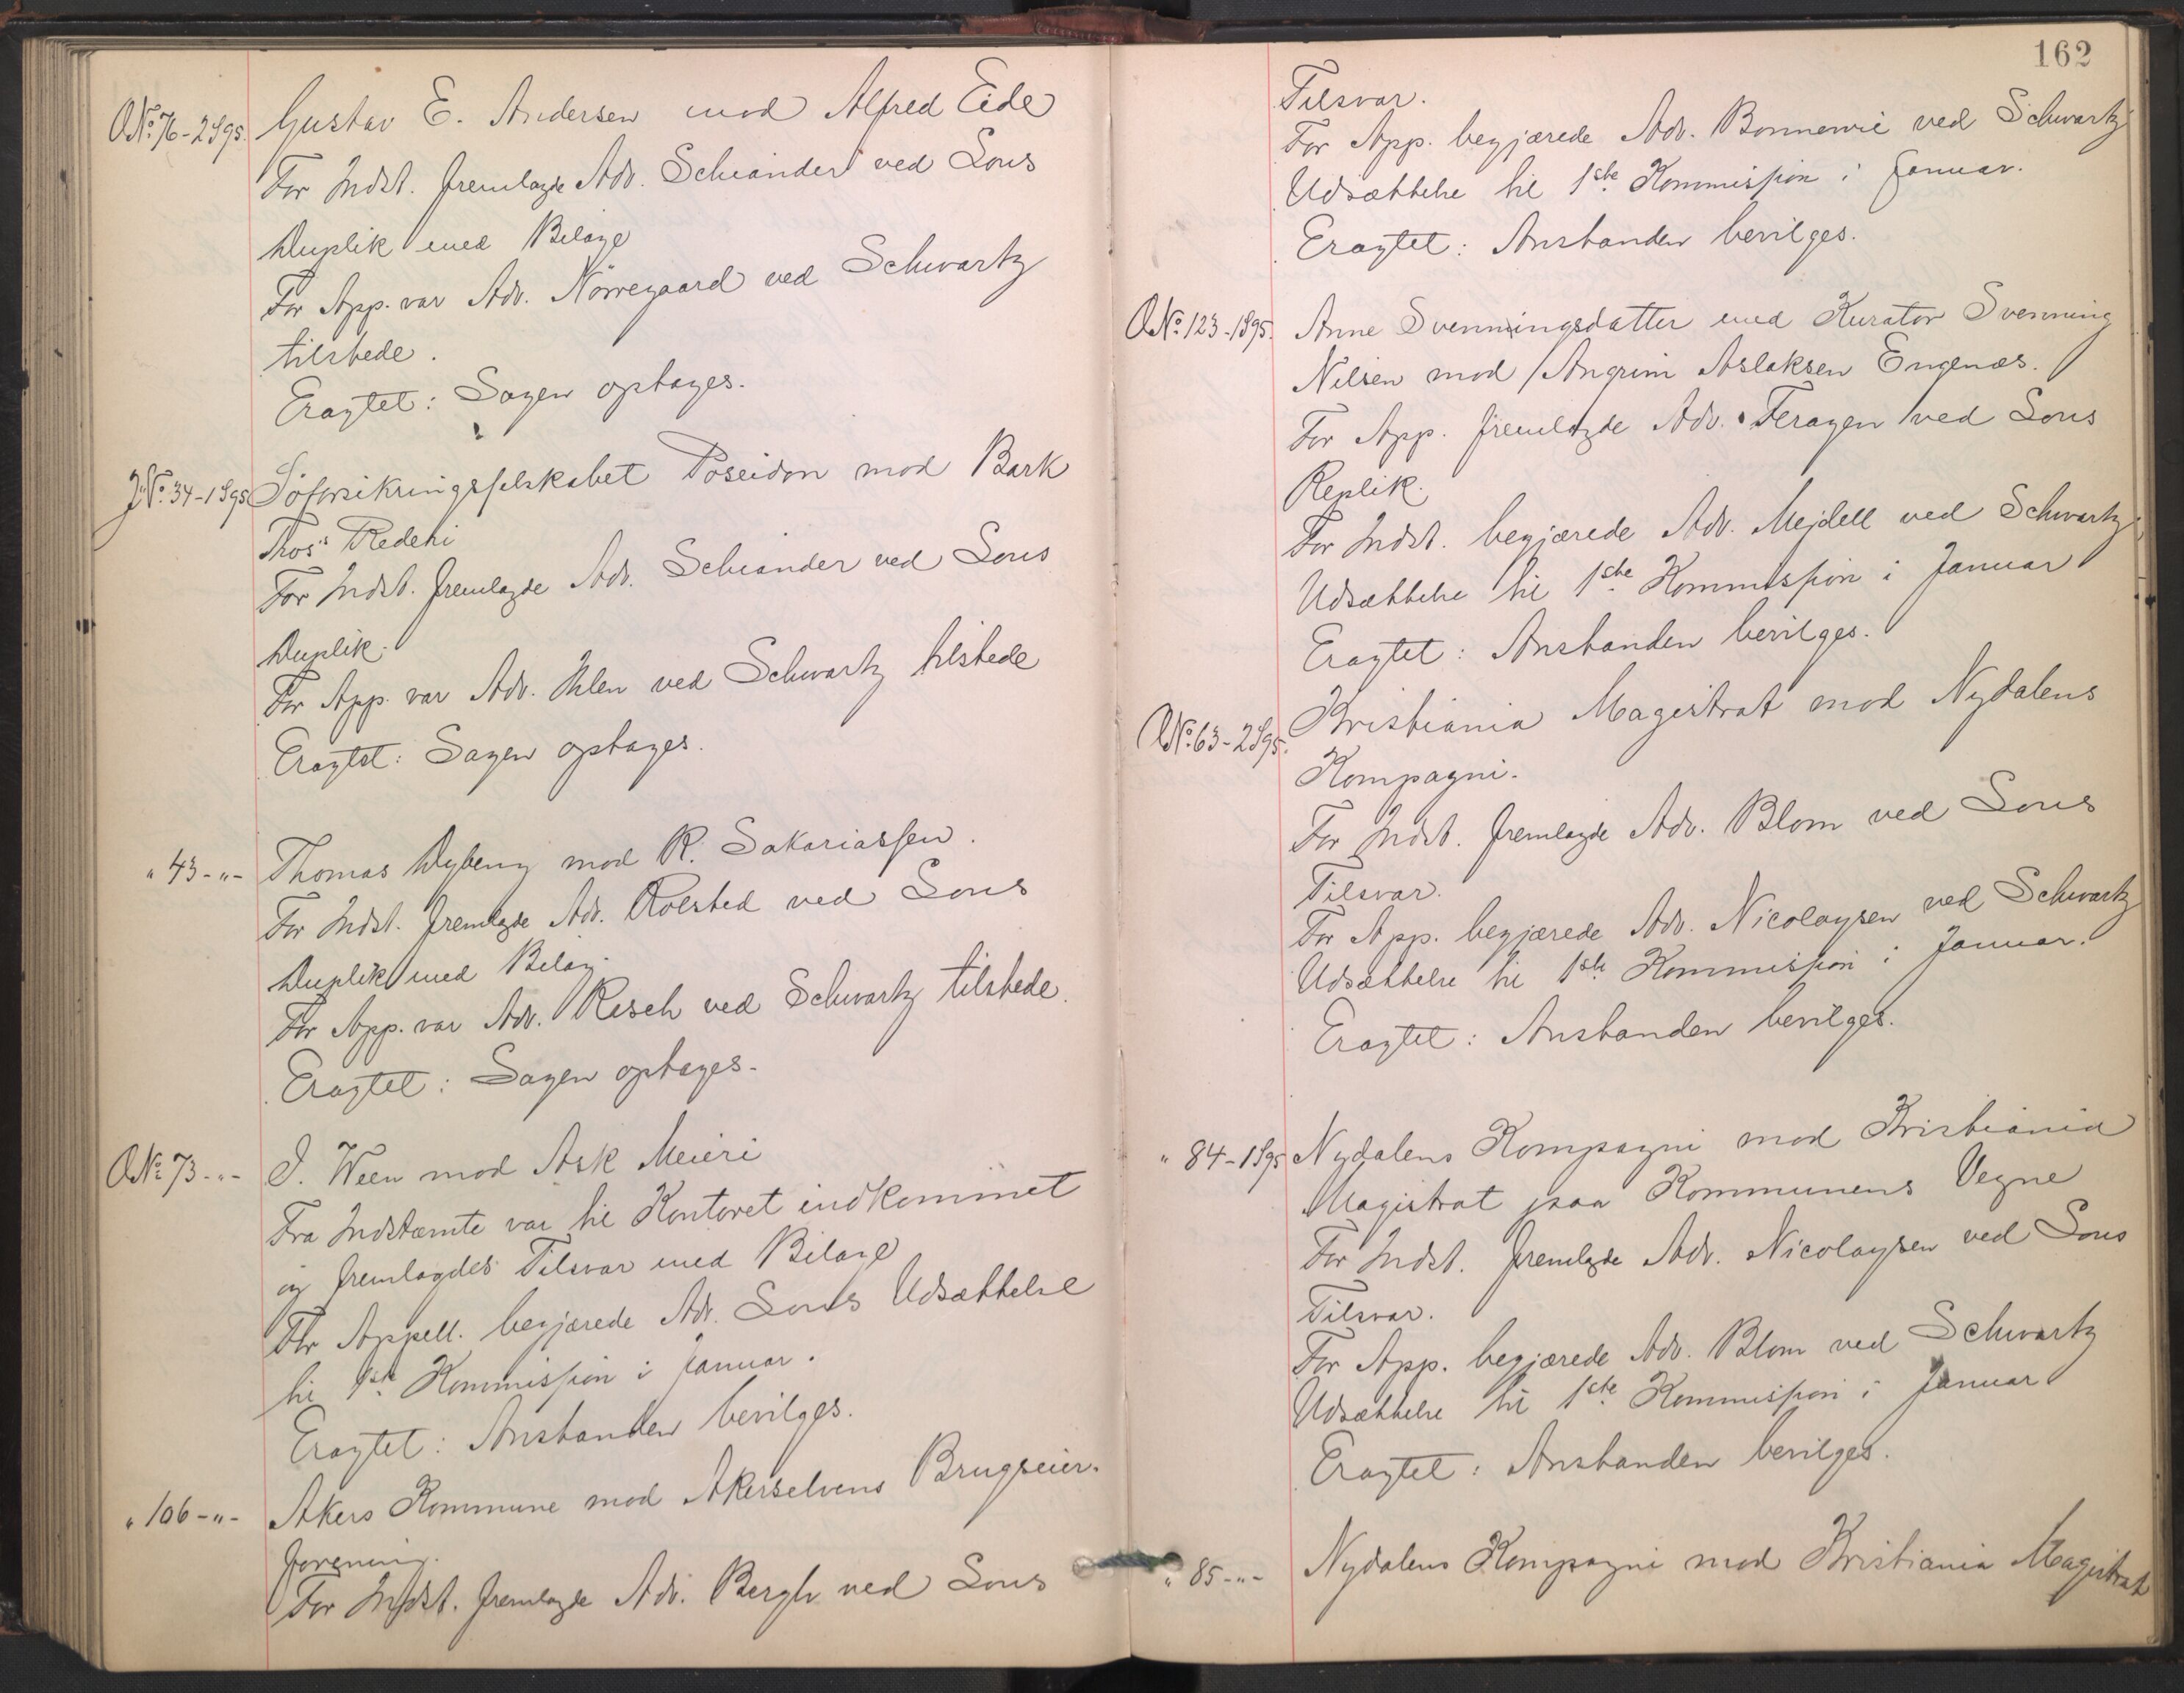 O.№ 76-2/95. Gustav E. Andersen mod Alfred Eide
For Indst. fremlagde Adv. Schiander ved Lous
Duplik med Bilage
For App. var Adv. Nörregaard ved Schwartz
tilstede.
Eragtet: Sagen optages.
J.№ 34-1/95 Söforsikringsselskabet Poseidon mod Bark
"Fros" Rederi
For Indst. fremlagde Adv. Schiander ved Lous
Duplik.
For App. var Adv. Ihlen ved Schwartz tilstede
Eragtet: Sagen optages.
" 43-"- Thomas Dyberg mod R. Sakariassen.
For Indst. fremlagde Adv. Rolsted ved Lous
Duplik med Bilag.
For App. var Adv. Resch ved Schwartz tilstede.
Eragtet: Sagen optages.
O.№ 73-"- I. Ween mod Ask Meieri
Fra Indstævnte var til Kontoret indkommet
og fremlagdes Tilsvar med Bilage
For Appell. begjærede Adv. Lous Udsættelse
til 1ste Kommission i Januar.
Eragtet: Anstanden bevilges.
" 106-"- Akers Kommune mod Akerselvens Brugseier-
forening.
For Indst. fremlagde Adv. Bergh ved Lous
162
Tilsvar.
For App. begjærede Adv. Bonnevie ved Schwartz
Udsættelse til 1ste Kommission i Januar.
Eragtet: Anstanden bevilges.
O.№ 123-1/95. Anne Svenningsdatter med Kurator Svenning
Nilsen mod Angrim Aslaksen Engenæs.
For App. fremlagde Adv. Feragen ved Lous
Replik.
For Indst. begjærede Adv. Mejdell ved Schwartz
Udsættelse til 1ste Kommission i Januar
Eragtet: Anstanden bevilges.
O.№ 63-2/95. Kristiania Magistrat mod Nydalens
Kompagni.
For Indst. fremlagde Adv. Blom ved Lous
Tilsvar.
For App. begjærede Adv. Nicolaysen ved Schwartz
Udsættelse til 1ste Kommission i Januar.
Eragtet: Anstanden bevilges.
" 84-1/95 Nydalens Kompagni mod Kristiania
Magistrat paa Kommunens Vegne
For Indst. fremlagde Adv. Nicolaysen ved Lous
Tilsvar.
For App. begjærede Adv. Blom ved Schwartz
Udsættelse til 1ste Kommission i Januar
Eragtet: Anstanden bevilges.
" 85-"- Nydalens Kompagni mod Kristiania Magistrat